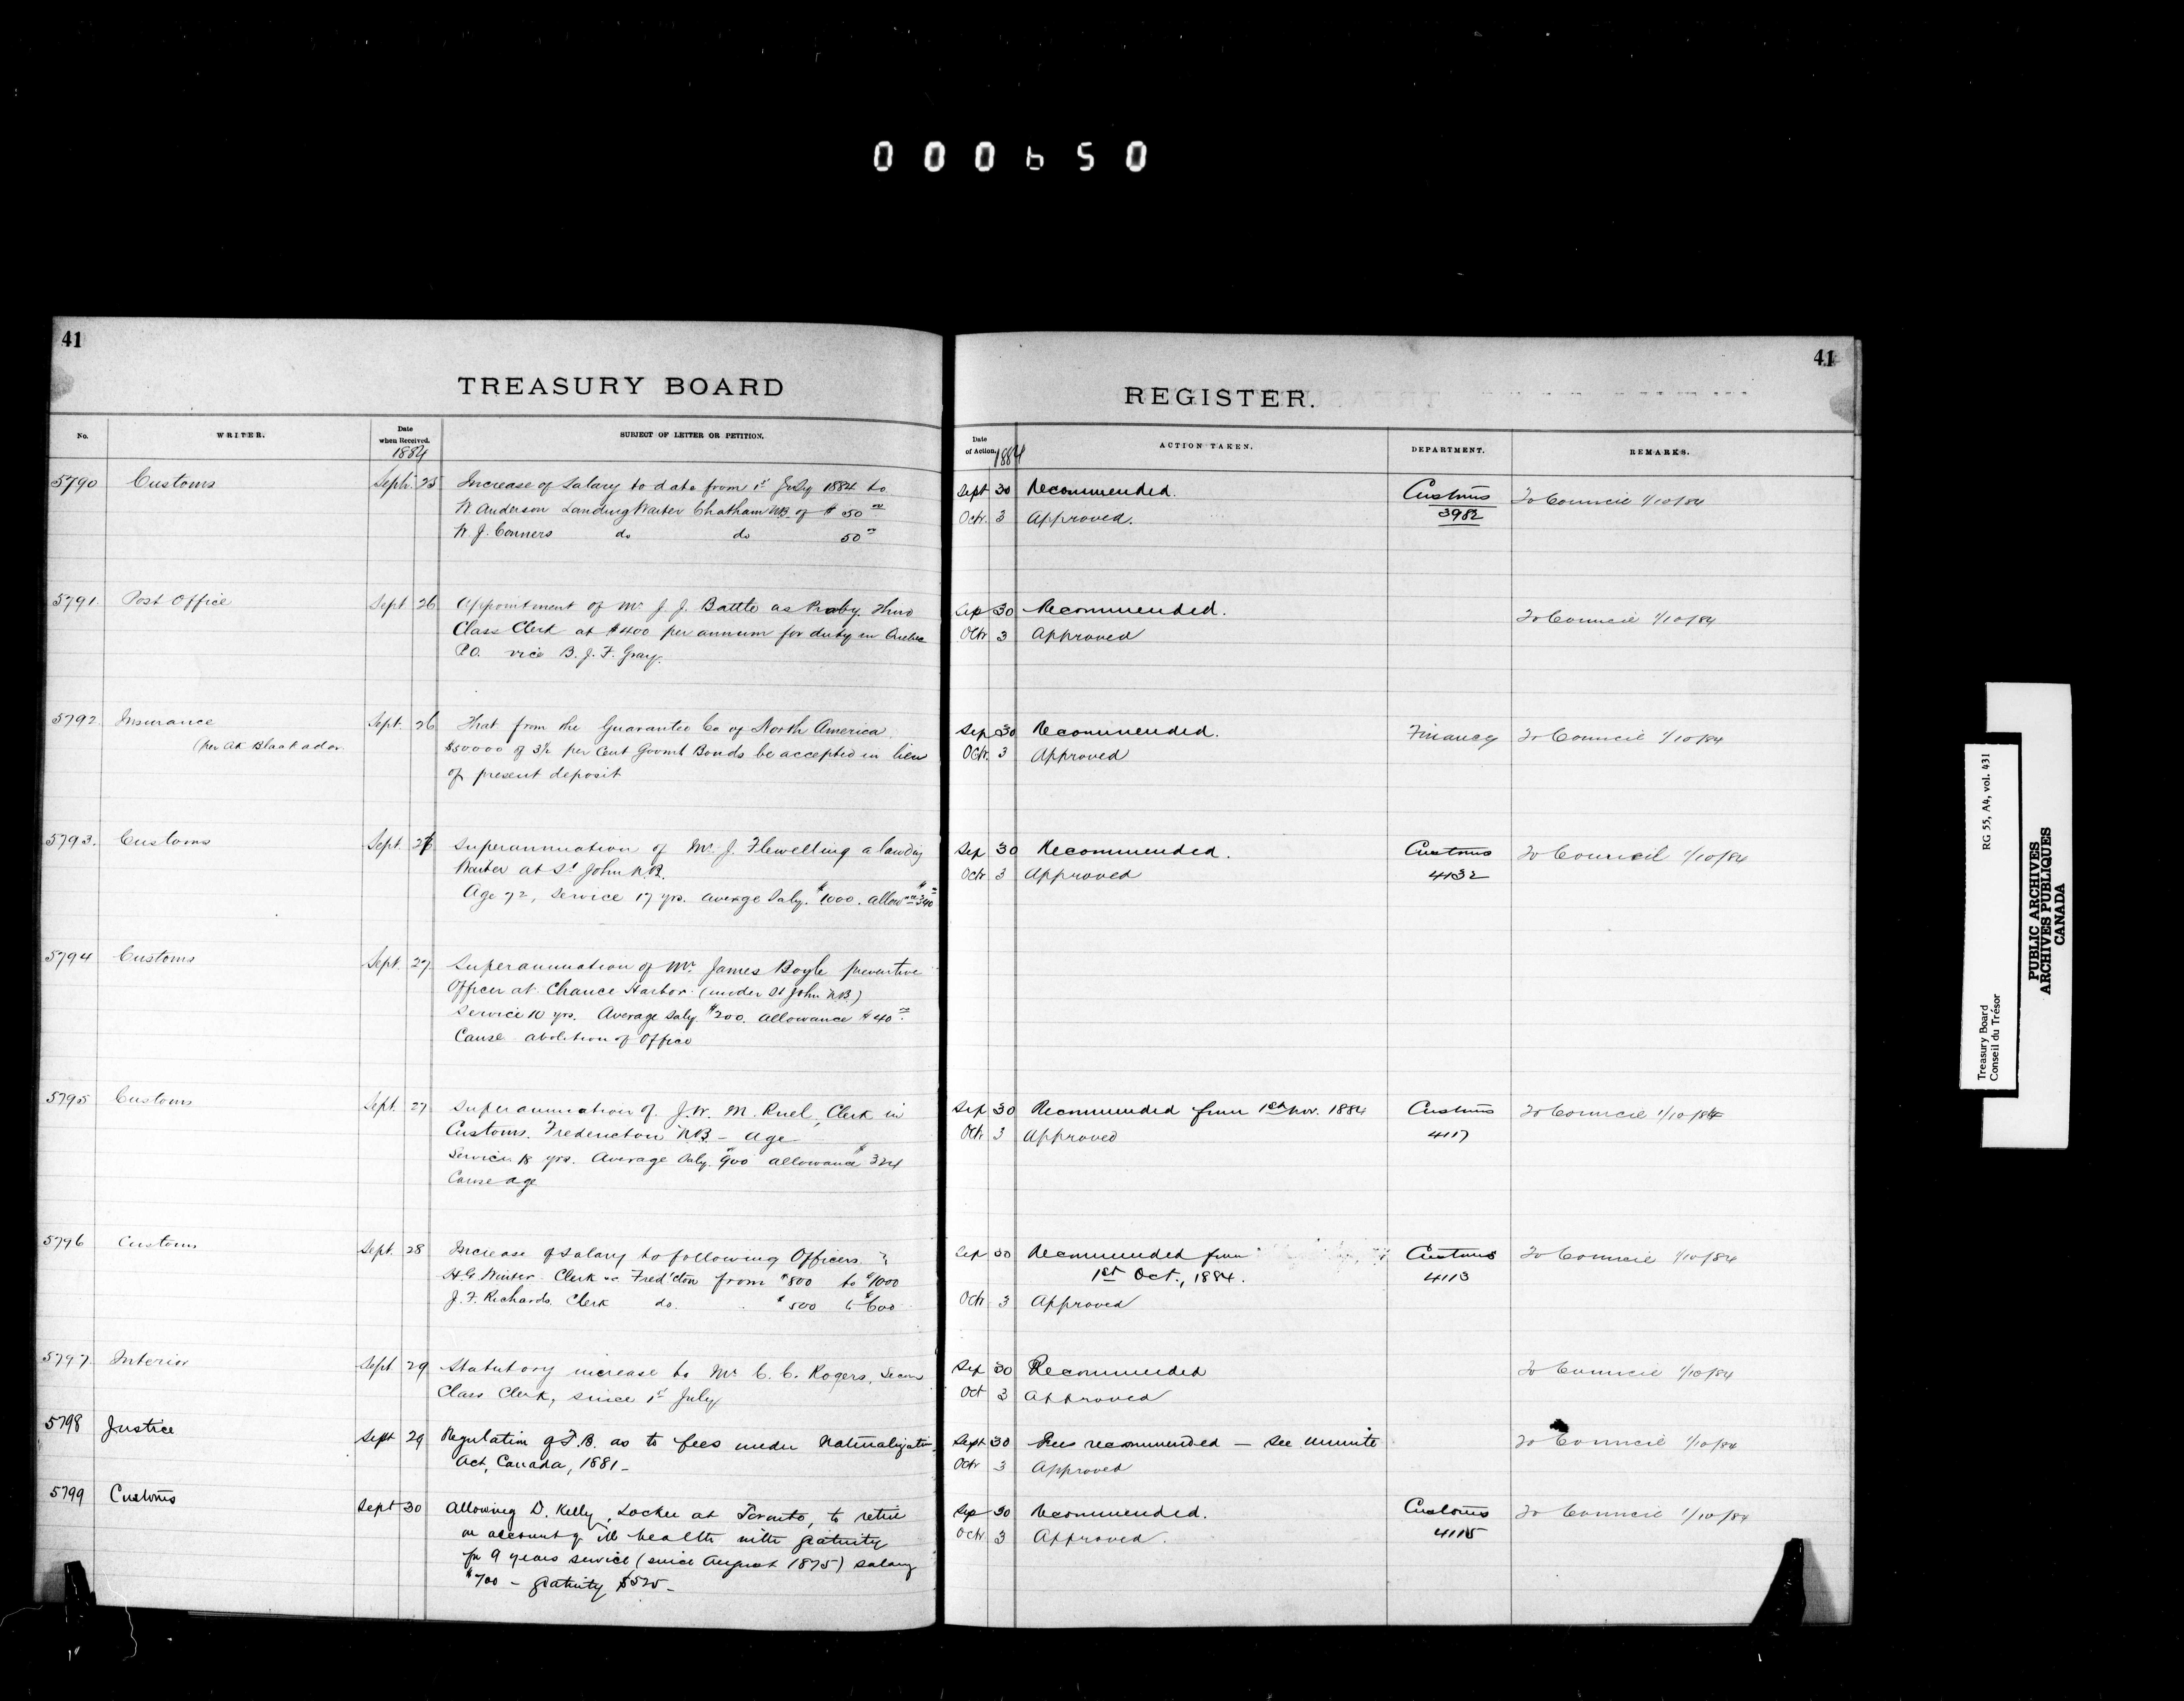 000650
41
TREASURY BOARD
No.
WRITER.
Date when Received.
1884
SUBJECT OF LETTER OR PETITION.
5790 Customs Sept. 25 Increase of Salary to date from 1st July 1884 to
W Anderson Landing Waiter Chatham NB. of $50 00
W. J. Conners do do 50 00
5791 Post Office Sept 26 Appointment of Mr J. J. Battle as Proby. Third
Class Clerk at $400 per annum for duty in Quebec
P.O. vice B. J. F. Gray.
5792 Insurance Sept. 26 That from the Guarantee Co of North America
(per AK Blackadar $50000 of 3½ per Cent Govmt Bonds be accepted in lieu
of present deposit
5793. Customs Sept. Superannuation of Mr. J. Flewelling a landing
Waiter at St John N.B.
Age 72, Service 17 yrs. average Saly. $1000. allowce $340
5794 Customs Sept. 27 Superannuation of Mr. James Boyle preventive
Officer at Chance Harbor (under St John NB)
Service 10 yrs. Average Saly. $200. allowance $40 00
Cause abolition of Office
5795 Customs Sept. 27 Superannuation of J. W. M. Ruel, Clerk in
Customs. Fredericton NB - age
Service 18 yrs. Average Saly. $900 allowance $324
Cause age
5796 Customs Sept. 28 Increase of Salary to following Officers
H.G. Winter Clerk Fred'cton from $800 to $1000
J. F. Richards. Clerk do. $500 to $600
5797 Interior Sept 29 Statutory increase to Mr C. C. Rogers, Secon
Class Clerk, since 1st July
5798 Justice Sept 29 Regulation of T.B. as to fees under Naturalization
Act, Canada, 1881 -
5799 Customs Sept 30 Allowing D. Kelly, Locker at Toronto, to retire
on account of ill health with gratuity
for 9 years service (since August 1875) salary
$700 - gratuity $525 -
41
REGISTER.
Date of Action.
1884
ACTION TAKEN.
DEPARTMENT.
REMARKS.
Sept 30 Recommended. Customs To Council 1/10/84
Octr. 3 Approved. 3982
Sep 30 Recommended. To Council 1/10/84
Octr 3 Approved
Sep 30 Recommended. Finance To Council 1/10/84
Octr. 3 Approved
Sep 30 Recommended. Customs To Council 1/10/84
Octr 3 Approved 4132
Sep 30 Recommended from 1st Nov. 1884 Customs To Council 1/10/84
Octr 3 Approved 4117
Sep 30 Recommended from Customs To Council 1/10/84
1st Oct., 1884. 4113
Octr 3 Approved
Sep 30 Recommended To Council 1/10/84
Oct 3 Approved
Sept 30 Fees recommended - see minute To Council 1/10/84
Octr 3 Approved
Sep 30 Recommended. Customs To Council 1/10/84
Octr 3 Approved. 4115
Treasury Board RG 55, A4, vol. 431
Conseil du Trésor
PUBLIC ARCHIVES
ARCHIVES PUBLIQUES
CANADA